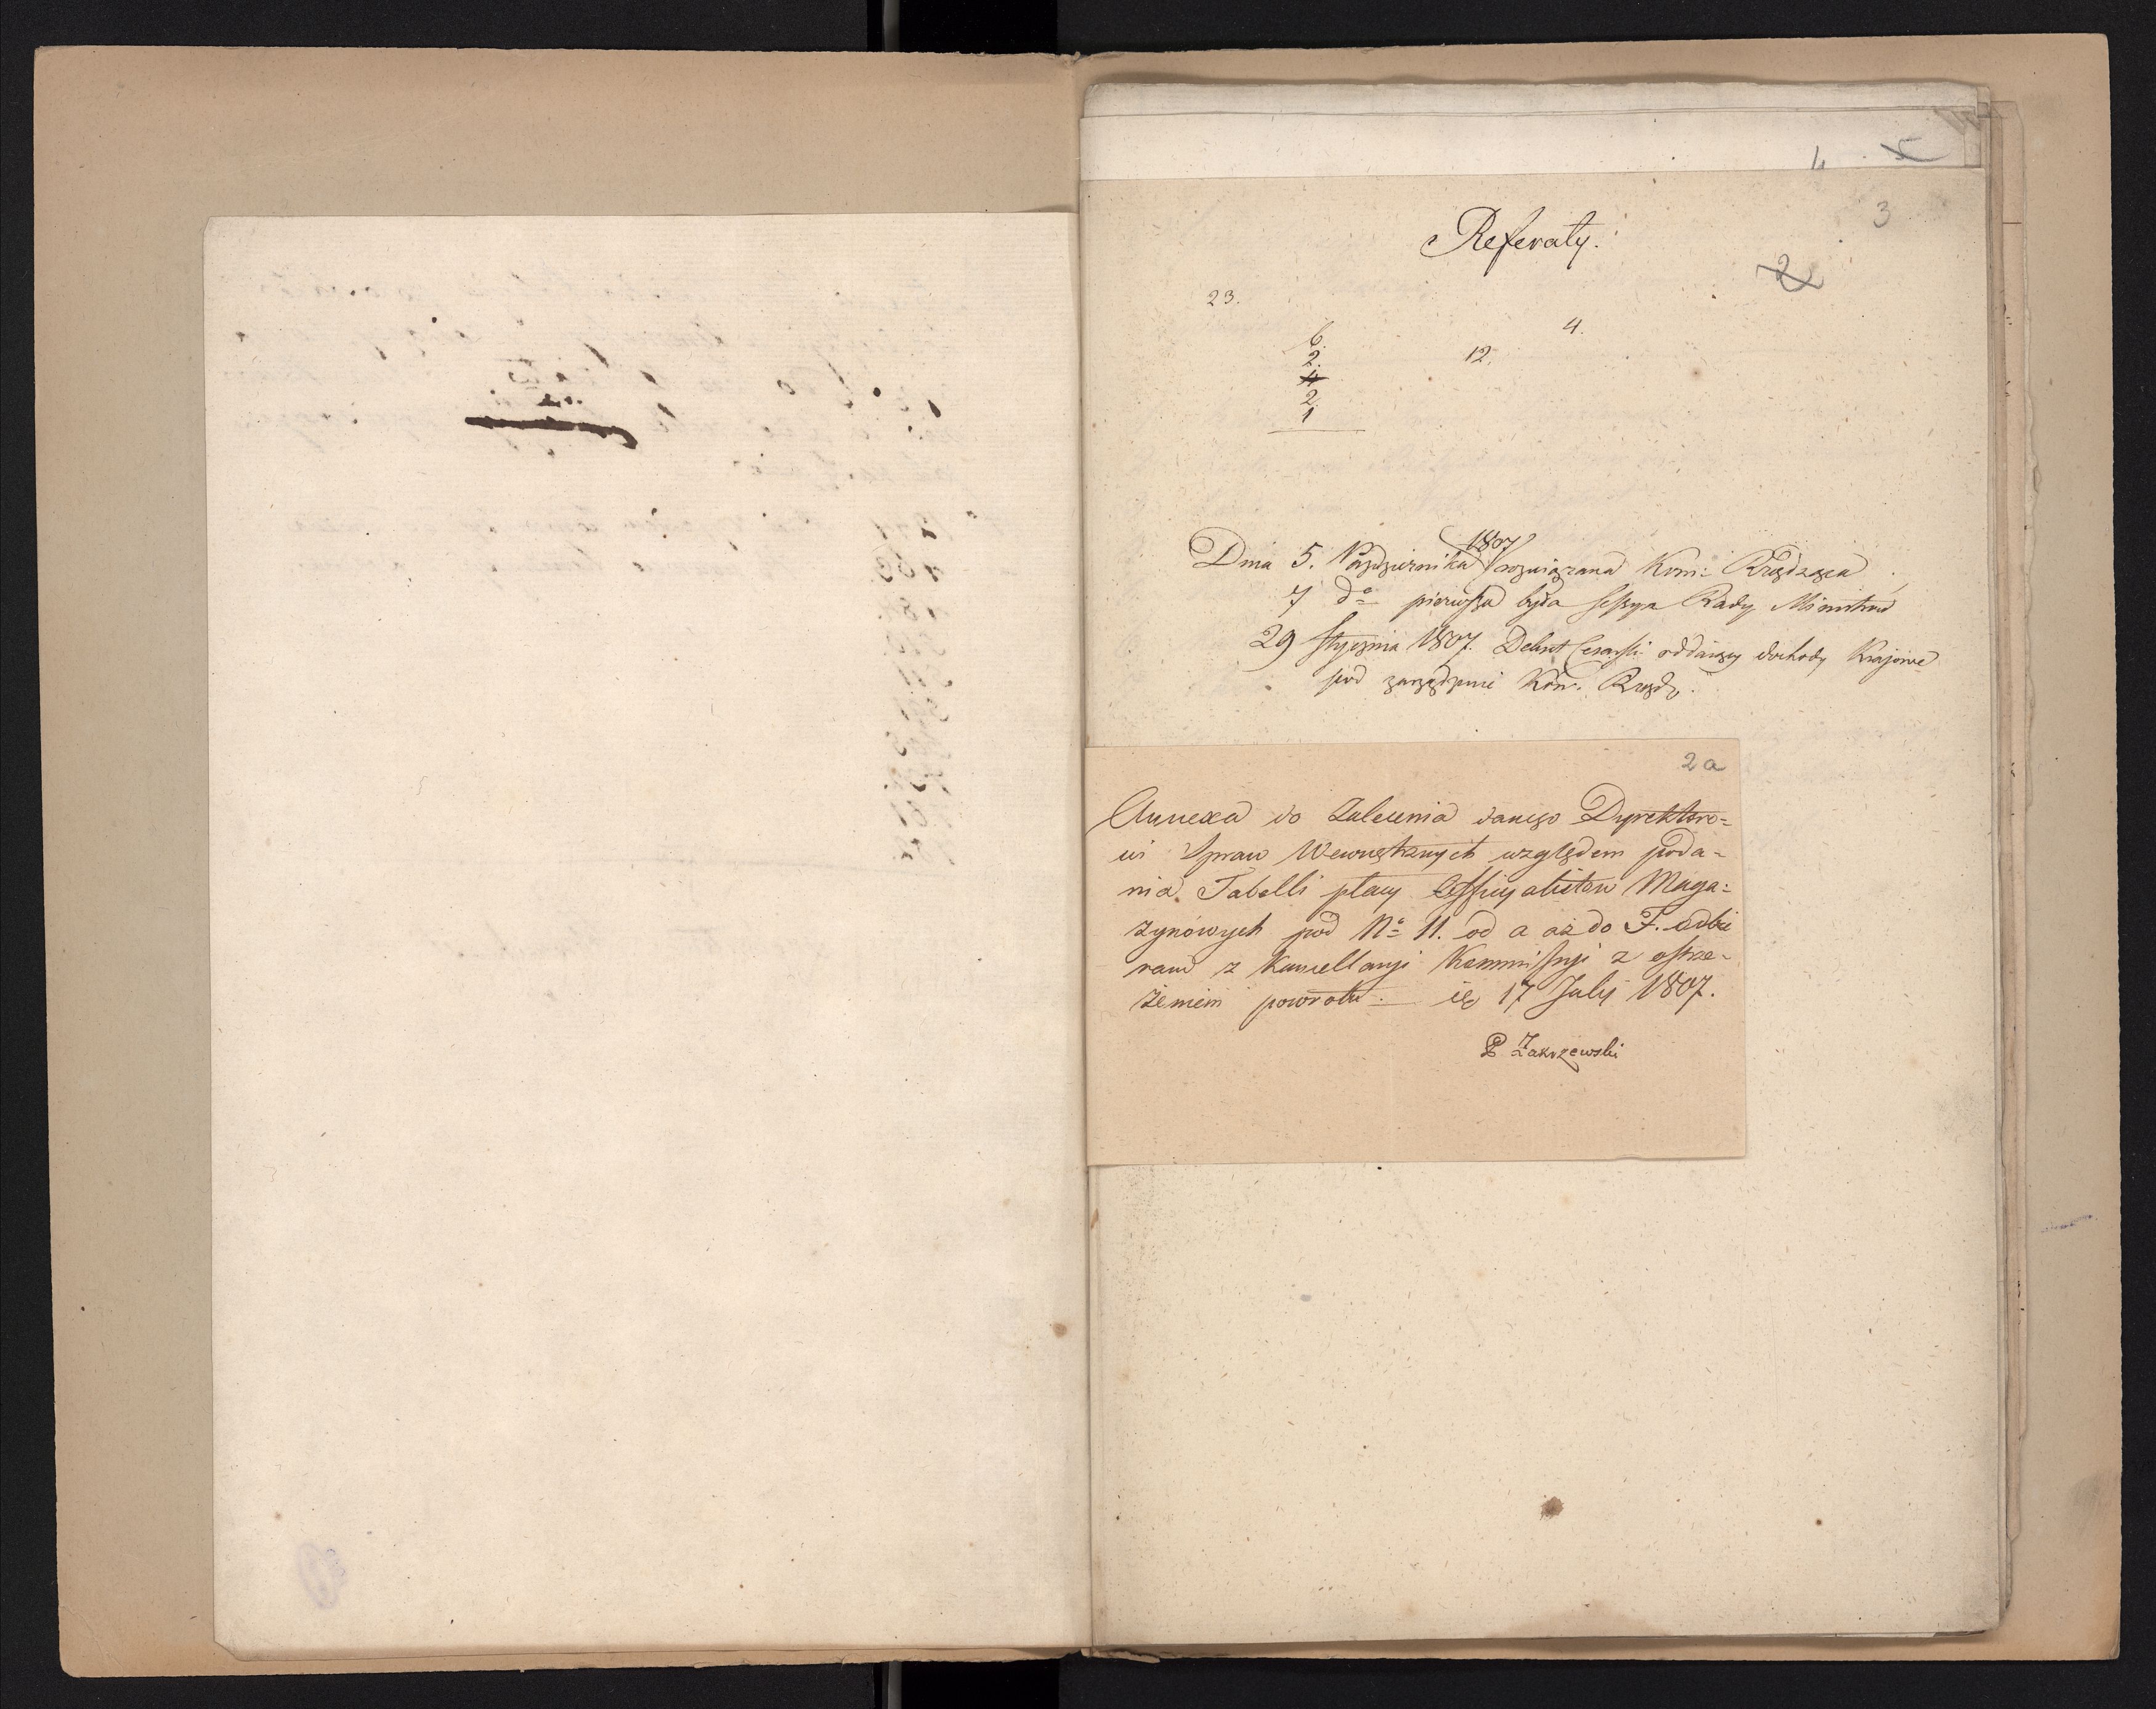 4 5
3
Referaty.
2
23.
4.
6.
12.
2.
4
2.
1
1807
Dnia 5. Października rozwiązana Kom: Rządząca
7 do pierwsza była sessya Rady Ministrów
29 stycznia 1807. Dekret Cesarski oddaiący dochody Krajowe
pod zarządzenie Kom. Rządz.
2a
Annexa do Zalecenia danego Dyrektoro=
wi Spraw Wewnętrznych względem poda=
nia Tabelli płacy Officyalistow Maga=
zynowych pod No 11. od a aż do F. odbie
ram z Kancellaryi Kommissyi z ostrze=
żeniem powrotu. 17 Julij 1807.
P Zakrzewski